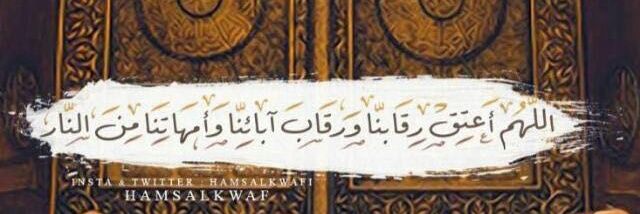 اللَّهُم أَعتِق رِقابنّا وَرقَابَ آبائِنّا وَأمهَاتِنَا مِنَ النَّار
INSTA & TWITTER : HAMSALKWAFI
HAMSALKWAF